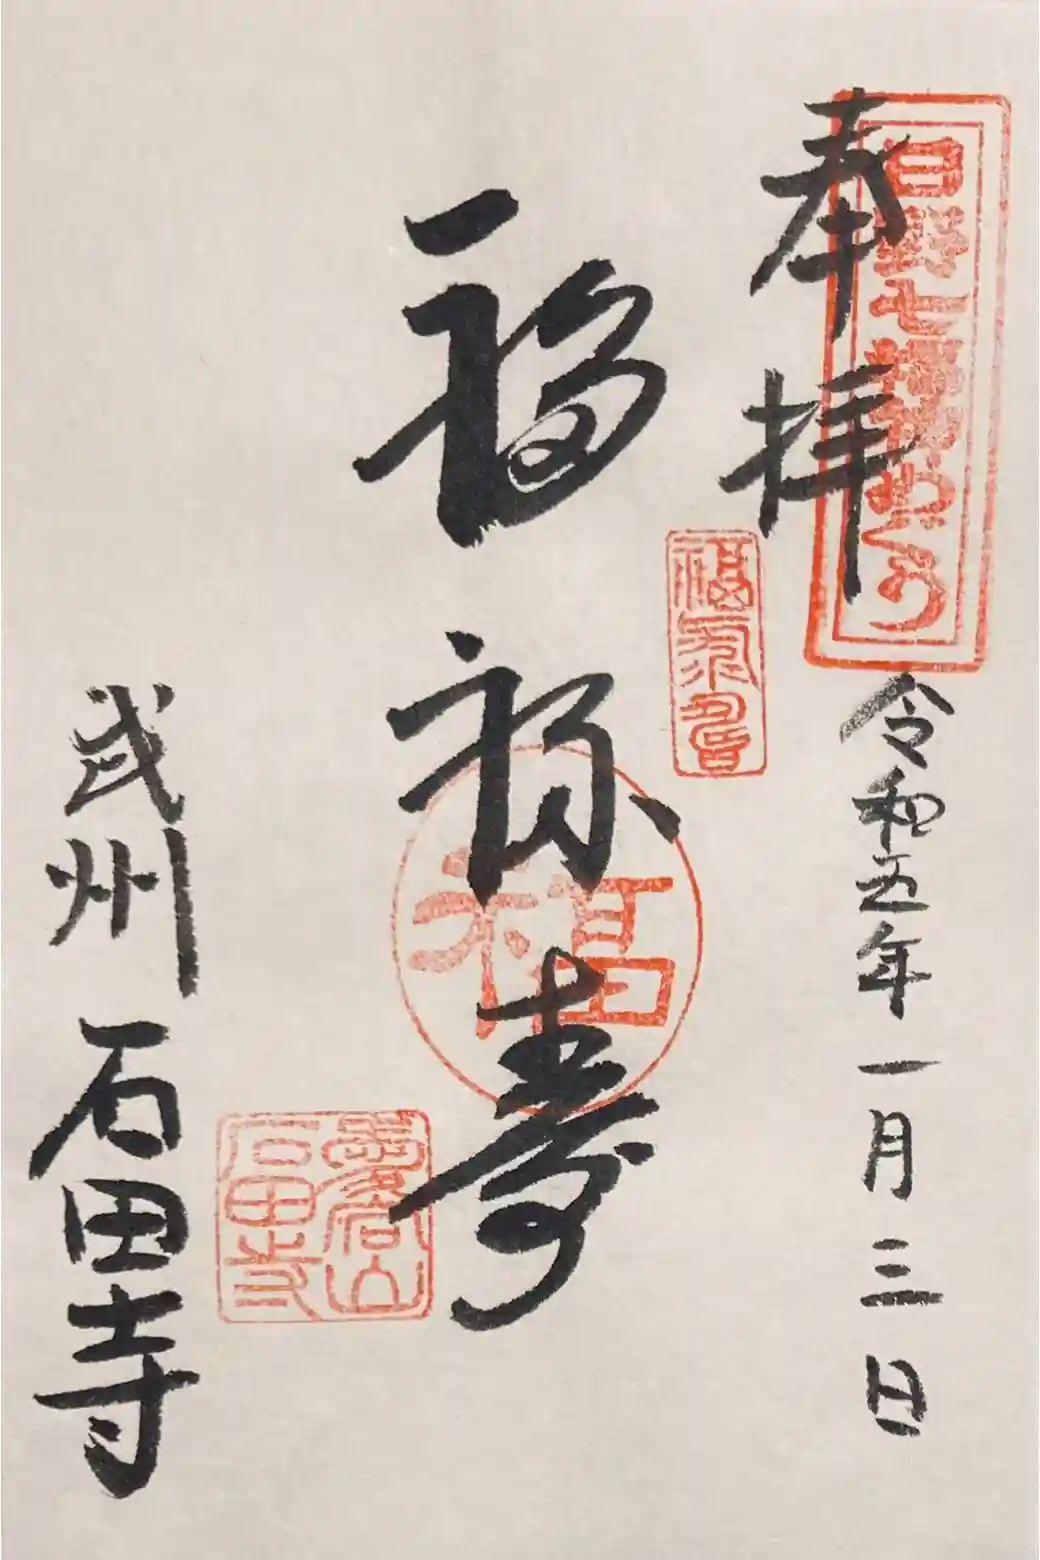 奉拝
日野七福神めぐり
令和五年一月三日
福禄寿
福
武州 石田寺
愛宕山
石田寺